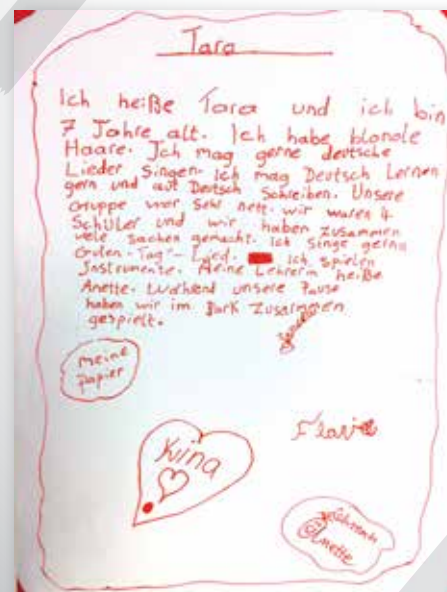 Tara
Ich heiße Tara und ich bin
7 Jahre alt. Ich habe blonde
Haare. Ich mag gerne deutsche
Lieder singen. Ich mag Deutsch Lernen
gern und auf Deutsch Schreiben. Unsere
Gruppe war Sehr nett. wir waren 4
Schüler und wir haben zusammen
viele sachen gemacht. Ich singe gerne
Guten-Tag-Lied. Ich spielen
Instrumente. Meine Lehrerin heiße
Anette. Während unsere Pause
haben wir im Park zusammen
gespielt.
meine
papier
Kiina
Flavia
Anette